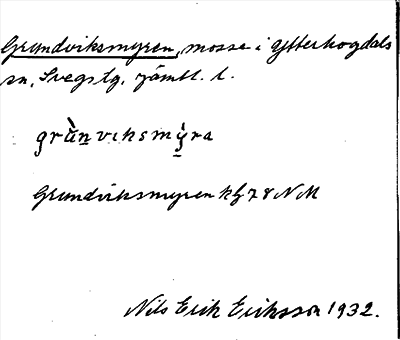 Grundviksmyren, mosse i Ytterhogdals
sn, Svegs tg. Jämtl. l.
grùn̲viksmỳ̲ra
Grundviksmyren kbg 78 NM
Nils Erik Eriksson 1932.